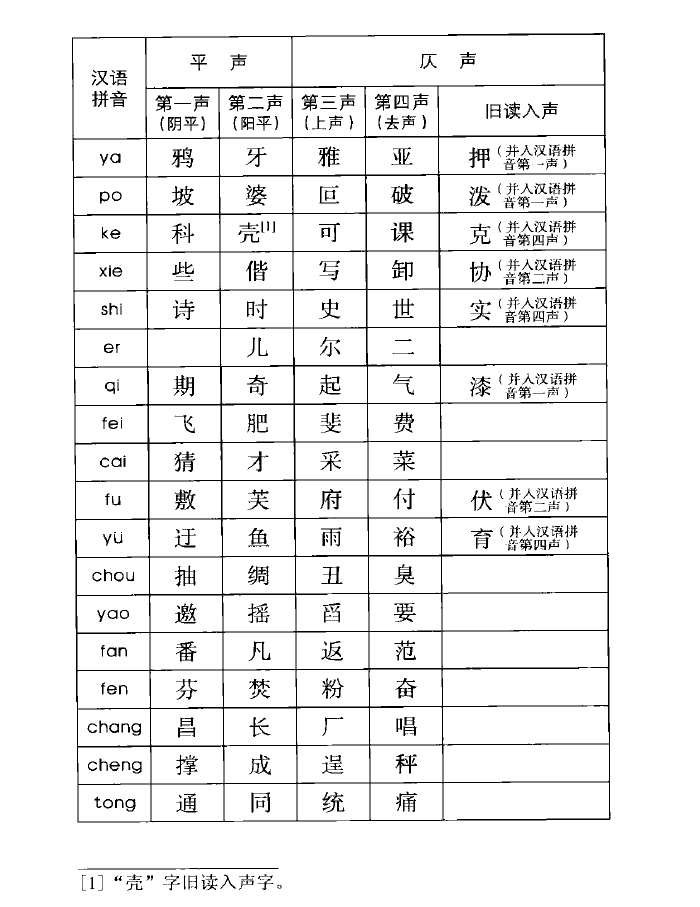 汉语拼音 平 声 仄 声
第一声(阴平) 第二声(阳平) 第三声(上声) 第四声(去声) 旧读入声
ya 鸦 牙 雅 亚 押(并入汉语拼音第一声)
po 坡 婆 叵 破 泼(并入汉语拼音第一声)
ke 科 壳[1] 可 课 克(并入汉语拼音第四声)
xie 些 偕 写 卸 协(并入汉语拼音第二声)
shi 诗 时 史 世 实(并入汉语拼音第四声)
er 儿 尔 二
qi 期 奇 起 气 漆(并入汉语拼音第一声)
fei 飞 肥 斐 费
cai 猜 才 采 菜
fu 敷 芙 府 付 伏(并入汉语拼音第二声)
yü 迂 鱼 雨 裕 育(并入汉语拼音第四声)
chou 抽 绸 丑 臭
yao 邀 摇 舀 要
fan 番 凡 返 范
fen 芬 焚 粉 奋
chang 昌 长 厂 唱
cheng 撑 成 逞 秤
tong 通 同 统 痛
[1]“壳”字旧读入声字。